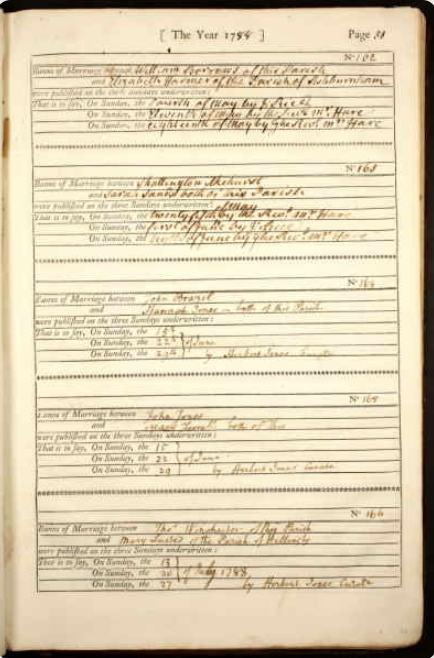 [ The Year 1788 ] Page 31
No 162
Banns of Marriage between William Borrows of this Parish
and Elizabeth Harmer of the Parish of Ashburnham
were published on the three Sundays underwritten:
That is to say, On Sunday, the Fourth of May by
On Sunday, the Eleventh of May by the Revd. Mr. Hare
On Sunday, the Eighteenth of May by the Revd. Mr. Hare
No 163
Banns of Marriage between Akehurst
and Sarah Sands both of this Parish
were published on the three Sundays underwritten:
That is to say, On Sunday, the twenty fifth by the Revd. Mr. Hare
On Sunday, the first of June by
On Sunday, the of June by the Revd. Mr. Hare
No 164
Banns of Marriage between John Brazil
and Hannah Jones both of this Parish
were published on the three Sundays underwritten:
That is to say, On Sunday, the 15th
On Sunday, the 22d of June
On Sunday, the 29th by Herbert Jones Curate
No 165
Banns of Marriage between John Jones
and both of this
were published on the three Sundays underwritten:
That is to say, On Sunday, the 15
On Sunday, the 22 of June
On Sunday, the 29 by Herbert Jones Curate
No 166
Banns of Marriage between Thos. Winchester of this Parish
and Mary of the Parish of
were published on the three Sundays underwritten:
That is to say, On Sunday, the 13
On Sunday, the 20 of July 1788
On Sunday, the 27 by Herbert Jones Curate